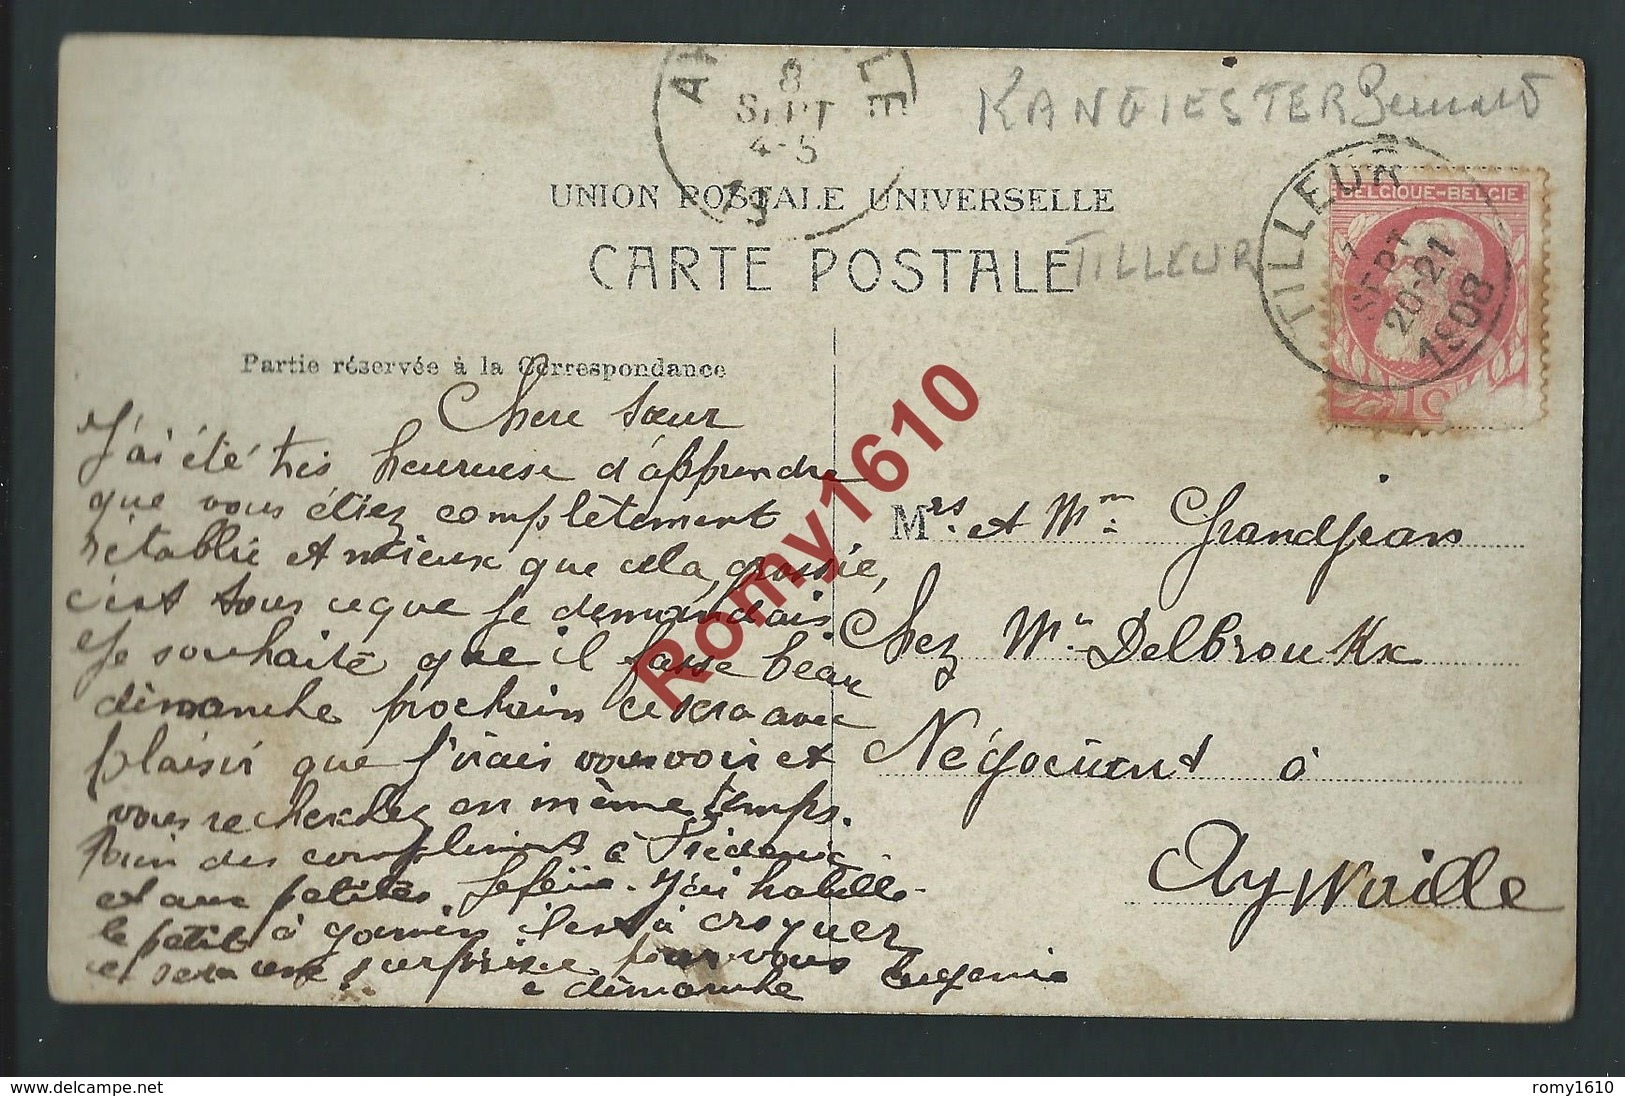 8
SEPT
4-5
KANGIESTER Bernard
UNION POSTALE UNIVERSELLE
CARTE POSTALE
TILLEUR
TILLEUR
7
SEPT
20-21
1908
BELGIQUE-BELGIE
10
Partie réservée à la Correspondance
Chere Sœur
J'ai été très heureuse d'apprendre
que vous étiez complètement
rétablie et mieux que cela, grossie,
c'est tous ce que je demandais.
Je souhaite que il fasse beau
dimanche prochain ce sera avec
plaisir que j'irais vous voir et
vous recherchez en même temps.
des compliment à Frédéric
et aux petites. J'ai habillé
le petit à gamin il est à croquer
et sera une surprise pour vous
dimanche Eugenie
Mrs. et Mm. Grandjean
Chez Mr. Delbrouckx
Négociant à
Aywaille
Romy1610
romy1610
https://www.delcampe.net